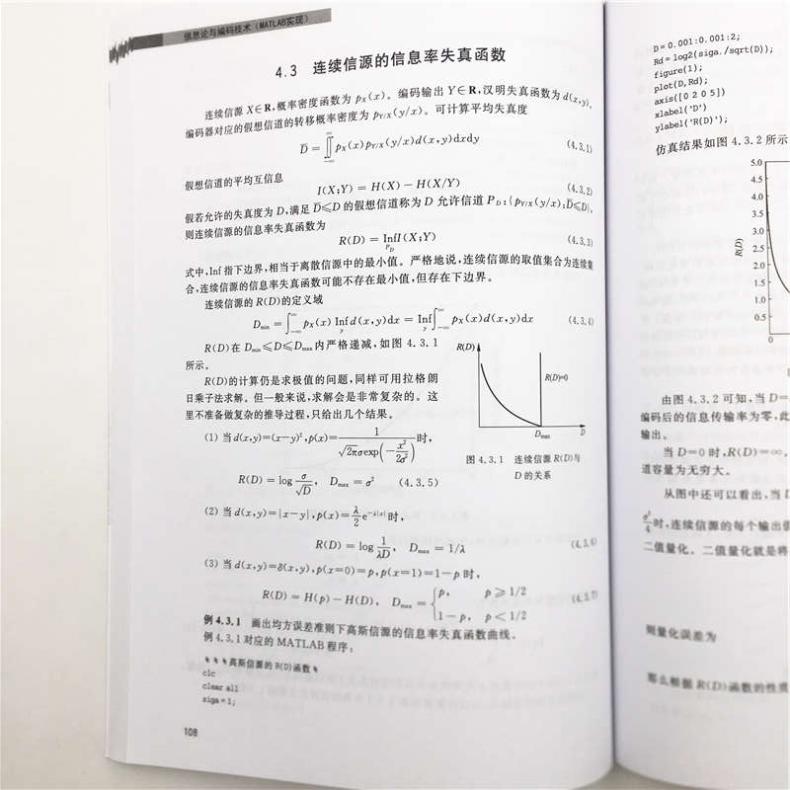 信息论与编码技术（MATLAB实现）
4.3 连续信源的信息率失真函数
连续信源 X∈R,概率密度函数为 pX(x)。编码输出 Y∈R,汉明失真函数为 d(x,y),
编码器对应的假想信道的转移概率密度为 pY/X(y/x)。可计算平均失真度
D̄ = ∬_{-∞}^{∞} pX(x)pY/X(y/x)d(x,y)dxdy (4.3.1)
假想信道的平均互信息
I(X;Y) = H(X) − H(X/Y) (4.3.2)
假若允许的失真度为 D,满足 D̄≤D 的假想信道称为 D 允许信道 PD:{pY/X(y/x);D̄≤D},
则连续信源的信息率失真函数为
R(D) = Inf_{PD} I(X;Y) (4.3.3)
式中,Inf 指下边界,相当于离散信源中的最小值。严格地说,连续信源的取值集合为连续集
合,连续信源的信息率失真函数可能不存在最小值,但存在下边界。
连续信源的 R(D)的定义域
Dmin = ∫_{-∞}^{∞} pX(x) Inf_y d(x,y)dx = Inf_y ∫_{-∞}^{∞} pX(x)d(x,y)dx (4.3.4)
R(D)在 Dmin≤D≤Dmax 内严格递减,如图 4.3.1
所示。
R(D)的计算仍是求极值的问题,同样可用拉格朗
日乘子法求解。但一般来说,求解会是非常复杂的。这
里不准备做复杂的推导过程,只给出几个结果。
R(D)
R(D)=0
Dmax
D
图 4.3.1 连续信源 R(D)与
D 的关系
(1) 当 d(x,y)=(x−y)²,p(x)= 1/(√2πσexp(−x²/2σ²)) 时,
R(D) = log σ/√D, Dmax = σ² (4.3.5)
(2) 当 d(x,y)=|x−y|,p(x)= λ/2 e^{−λ|x|} 时,
R(D) = log 1/λD, Dmax = 1/λ (4.3.6)
(3) 当 d(x,y)=δ(x,y),p(x=0)=p,p(x=1)=1−p 时,
R(D) = H(p)−H(D), Dmax = { p, p≥1/2
1−p, p<1/2 (4.3.7)
例 4.3.1 画出均方误差准则下高斯信源的信息率失真函数曲线。
例 4.3.1 对应的 MATLAB 程序:
%%%高斯信源的 R(D)函数%
clc
clear all
siga=1;
108
D=0.001:0.001:2;
Rd=log2(siga./sqrt(D));
figure(1);
plot(D,Rd);
axis([0 2 0 5])
xlabel('D')
ylabel('R(D)');
仿真结果如图 4.3.2 所示
5.0
4.5
4.0
3.5
3.0
2.5
2.0
1.5
1.0
0.5
0
R(D)
由图 4.3.2 可知,当 D=
编码后的信息传输率为零,此
输出。
当 D=0 时,R(D)=∞,
道容量为无穷大。
从图中还可以看出,当 D
σ²/4 时,连续信源的每个输出值
二值量化。二值量化就是将
则量化误差为
那么根据 R(D)函数的性质